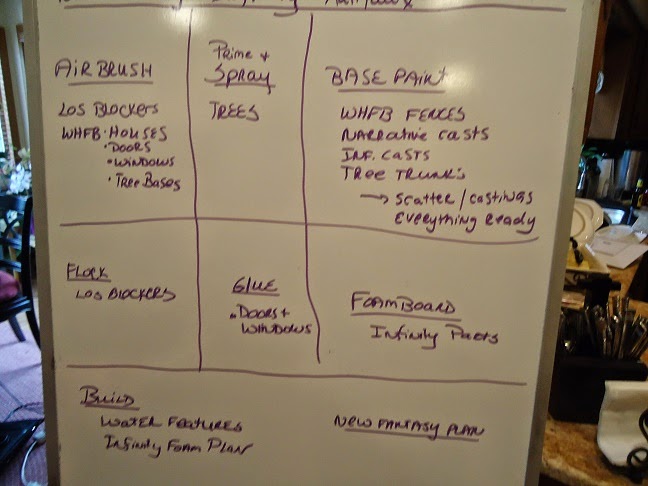 AIRBRUSH
LOS BLOCKERS
WHFB HOUSES
• DOORS
• WINDOWS
• TREE BASES
PRIME +
SPRAY
TREES
BASE PAINT
WHFB FENCES
NARRATIVE CASTS
INF. CASTS
TREE TRUNKS
→ SCATTER / CASTINGS
EVERYTHING READY
FLOCK
LOS BLOCKERS
GLUE
• DOORS +
WINDOWS
FOAMBOARD
INFINITY PARTS
BUILD
WATER FEATURES
INFINITY FOAM PLAN
NEW FANTASY PLAN